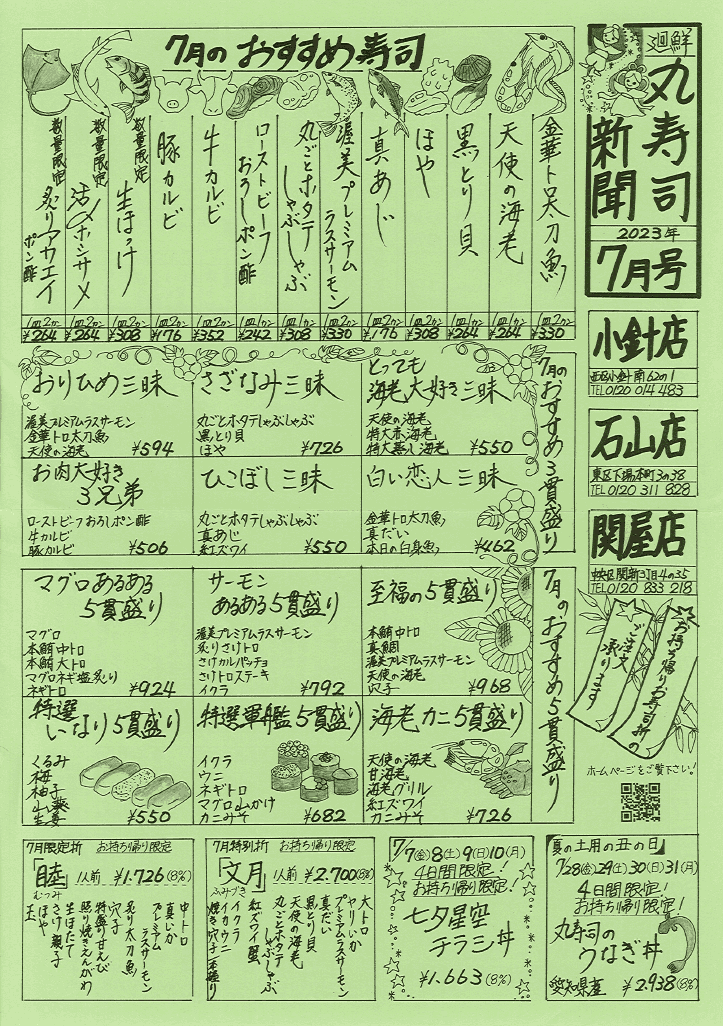 廻鮮
丸寿司
新聞
2023年
7月号
小針店
西区小針南62の1
TEL 0120 014 483
石山店
東区下場本町3の38
TEL 0120 311 828
関屋店
中央区関新3丁目4の35
TEL 0120 833 218
お持ち帰りお寿司折の
ご注文
承ります
ホームページをご覧下さい!
7月のおすすめ寿司
金華トロ太刀魚
1皿2カン
¥330
天使の海老
1皿1カン
¥264
黒とり貝
1皿2カン
¥264
ほや
1皿2カン
¥308
真あじ
1皿2カン
¥176
渥美プレミアム
ラスサーモン
1皿2カン
¥330
丸ごとホタテ
しゃぶしゃぶ
1皿2カン
¥308
ローストビーフ
おろしポン酢
1皿2カン
¥242
牛カルビ
1皿2カン
¥352
豚カルビ
1皿2カン
¥176
数量限定
生ほっけ
1皿2カン
¥308
数量限定
活〆ホシザメ
1皿2カン
¥264
数量限定
炙りアカエイ
ポン酢
1皿2カン
¥264
7月のおすすめ3貫盛り
とっても
海老大好き三昧
天使の海老
特大赤海老
特大蒸し海老
¥550
さざなみ三昧
丸ごとホタテしゃぶしゃぶ
黒とり貝
ほや
¥726
おりひめ三昧
渥美プレミアムラスサーモン
金華トロ太刀魚
天使の海老
¥594
白い恋人三昧
金華トロ太刀魚
真だい
本日の白身魚
¥462
ひこぼし三昧
丸ごとホタテしゃぶしゃぶ
真あじ
紅ズワイ
¥550
お肉大好き
3兄弟
ローストビーフおろしポン酢
牛カルビ
豚カルビ
¥506
7月のおすすめ5貫盛り
至福の5貫盛り
本鮪中トロ
真鯛
渥美プレミアムラスサーモン
天使の海老
穴子
¥968
サーモン
あるある5貫盛り
渥美プレミアムラスサーモン
炙りさけトロ
さけカルパッチョ
さけトロステーキ
イクラ
¥792
マグロあるある
5貫盛り
マグロ
本鮪中トロ
本鮪大トロ
マグロネギ塩炙り
ネギトロ
¥924
海老カニ5貫盛り
天使の海老
甘海老
海老グリル
紅ズワイ
カニみそ
¥726
特選軍艦5貫盛り
イクラ
ウニ
ネギトロ
マグロ山かけ
カニみそ
¥682
特選
いなり5貫盛り
くるみ
梅
柚子
山葵
生姜
¥550
7月限定折 お持ち帰り限定
「睦」
むつみ
1人前 ¥1.726(8%)
中トロ
真いか
プレミアム
ラスサーモン
炙り太刀魚
穴子
特盛り甘えび
照り焼きえんがわ
生ほたて
さけ親子
ほや
玉
7月特別折 お持ち帰り限定
「文月」
ふみづき
1人前 ¥2.700(8%)
大トロ
やりいか
プレミアムラスサーモン
真だい
黒とり貝
天使の海老
丸ごとホタテ
しゃぶしゃぶ
紅ズワイ蟹
イクラ
イカウニ
焼き穴子一本盛り
7/7(金)8(土)9(日)10(月)
4日間限定!
お持ち帰り限定!
七夕星空
チラシ丼
¥1.663(8%)
夏の土用の丑の日
7/28(金)29(土)30(日)31(月)
4日間限定!
お持ち帰り限定!
丸寿司の
うなぎ丼
愛知県産 ¥2.938(8%)